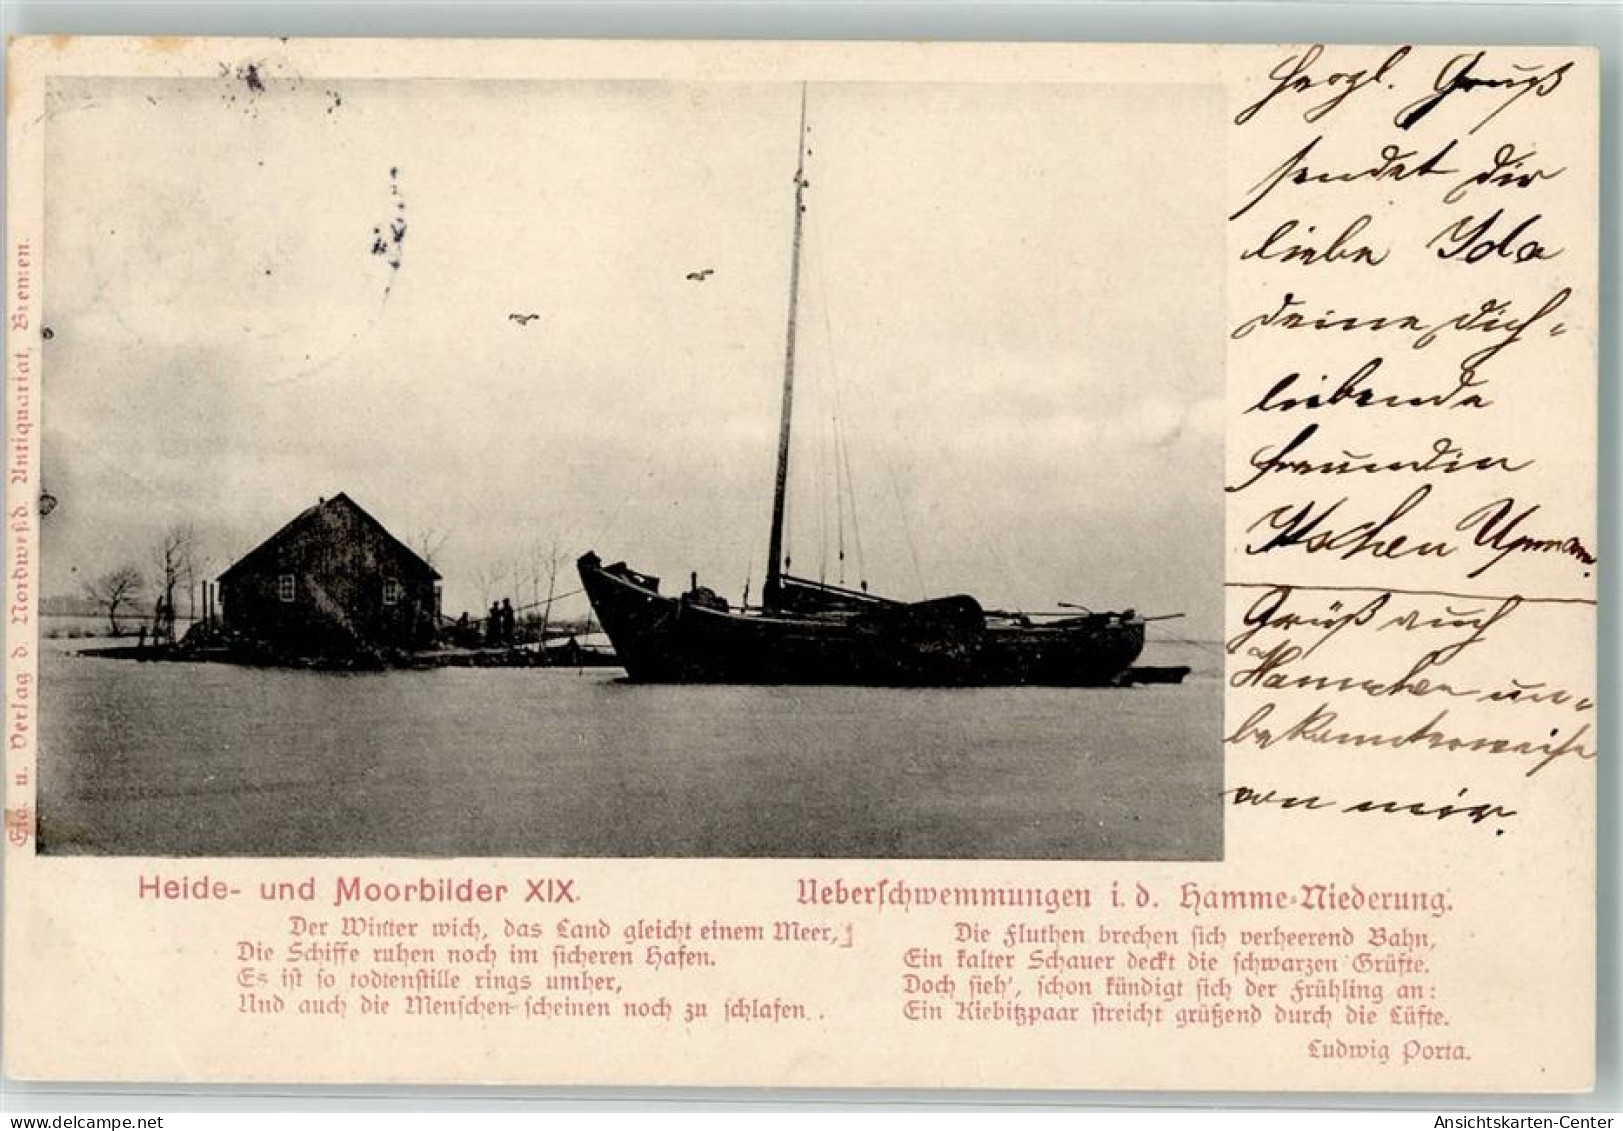 Herzl. Gruß
sendet Dir
liebe Ida
deine dich=
liebende
Freundin
Grüß auch
Hannchen un=
bekannterweise
von mir.
Eig. u. Verlag d. Nordwestd. Antiquariat, Bremen.
Heide- und Moorbilder XIX.
Der Winter wich, das Land gleicht einem Meer,
Die Schiffe ruhen noch im sicheren Hafen.
Es ist so todtenstille rings umher,
Und auch die Menschen scheinen noch zu schlafen.
Ueberschwemmungen i. d. Hamme-Niederung.
Die Fluthen brechen sich verheerend Bahn,
Ein kalter Schauer deckt die schwarzen Grüfte.
Doch sieh', schon kündigt sich der Frühling an:
Ein Kiebitzpaar streicht grüßend durch die Lüfte.
Ludwig Porta.
Ansichtskarten-Center
www.delcampe.net